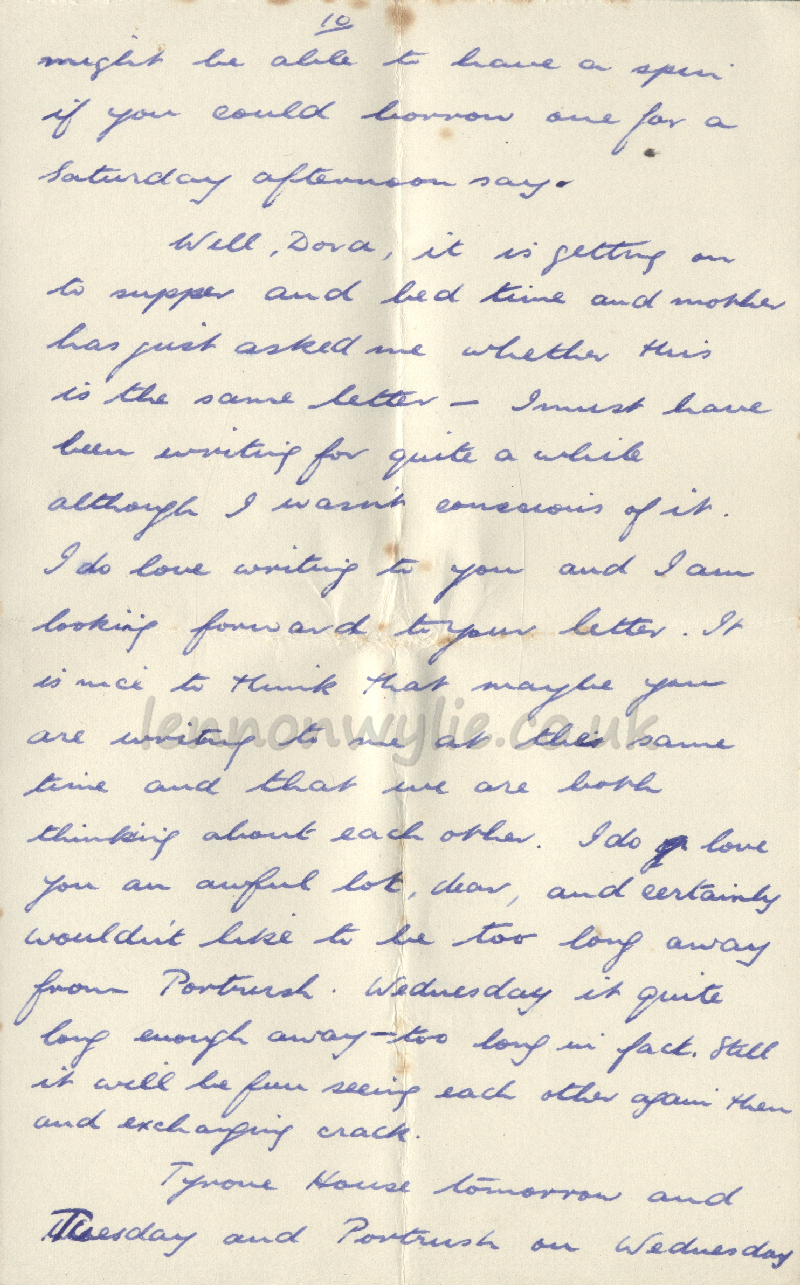 10
might be able to have a spin
if you could borrow one for a
Saturday afternoon say.
Well, Dora, it is getting on
to supper and bed time and mother
has just asked me whether this
is the same letter – I must have
been writing for quite a while
although I wasn't conscious of it.
I do love writing to you and I am
looking forward to your letter. It
is nice to think that maybe you
are writing to me at this same
time and that we are both
thinking about each other. I do love
you an awful lot, dear, and certainly
wouldn't like to be too long away
from Portrush. Wednesday it quite
long enough away – too long in fact. Still
it will be fun seeing each other again then
and exchanging crack.
Tyrone House tomorrow and
Tuesday and Portrush on Wednesday
lennonwylie.co.uk